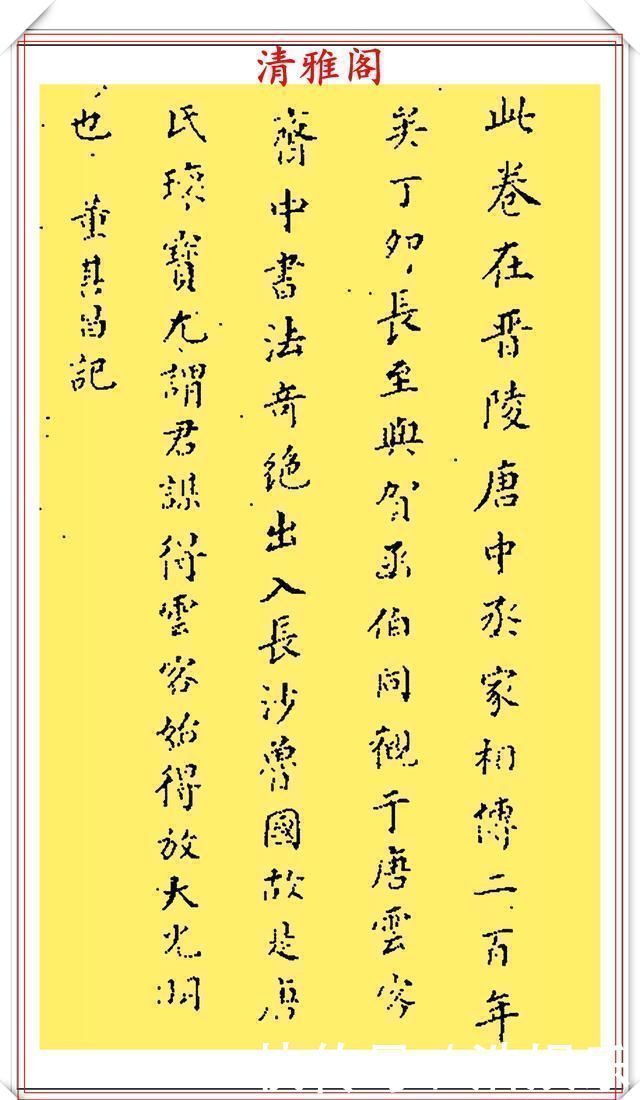 清雅阁
此卷在晉陵唐中丞家相傳二百年
矣丁卯長至與賀函伯同觀于唐雲客
齋中書法奇絕出入長沙魯國故是唐
氏環寶尤謂君謀得雲客始得放大光明
也 董其昌記